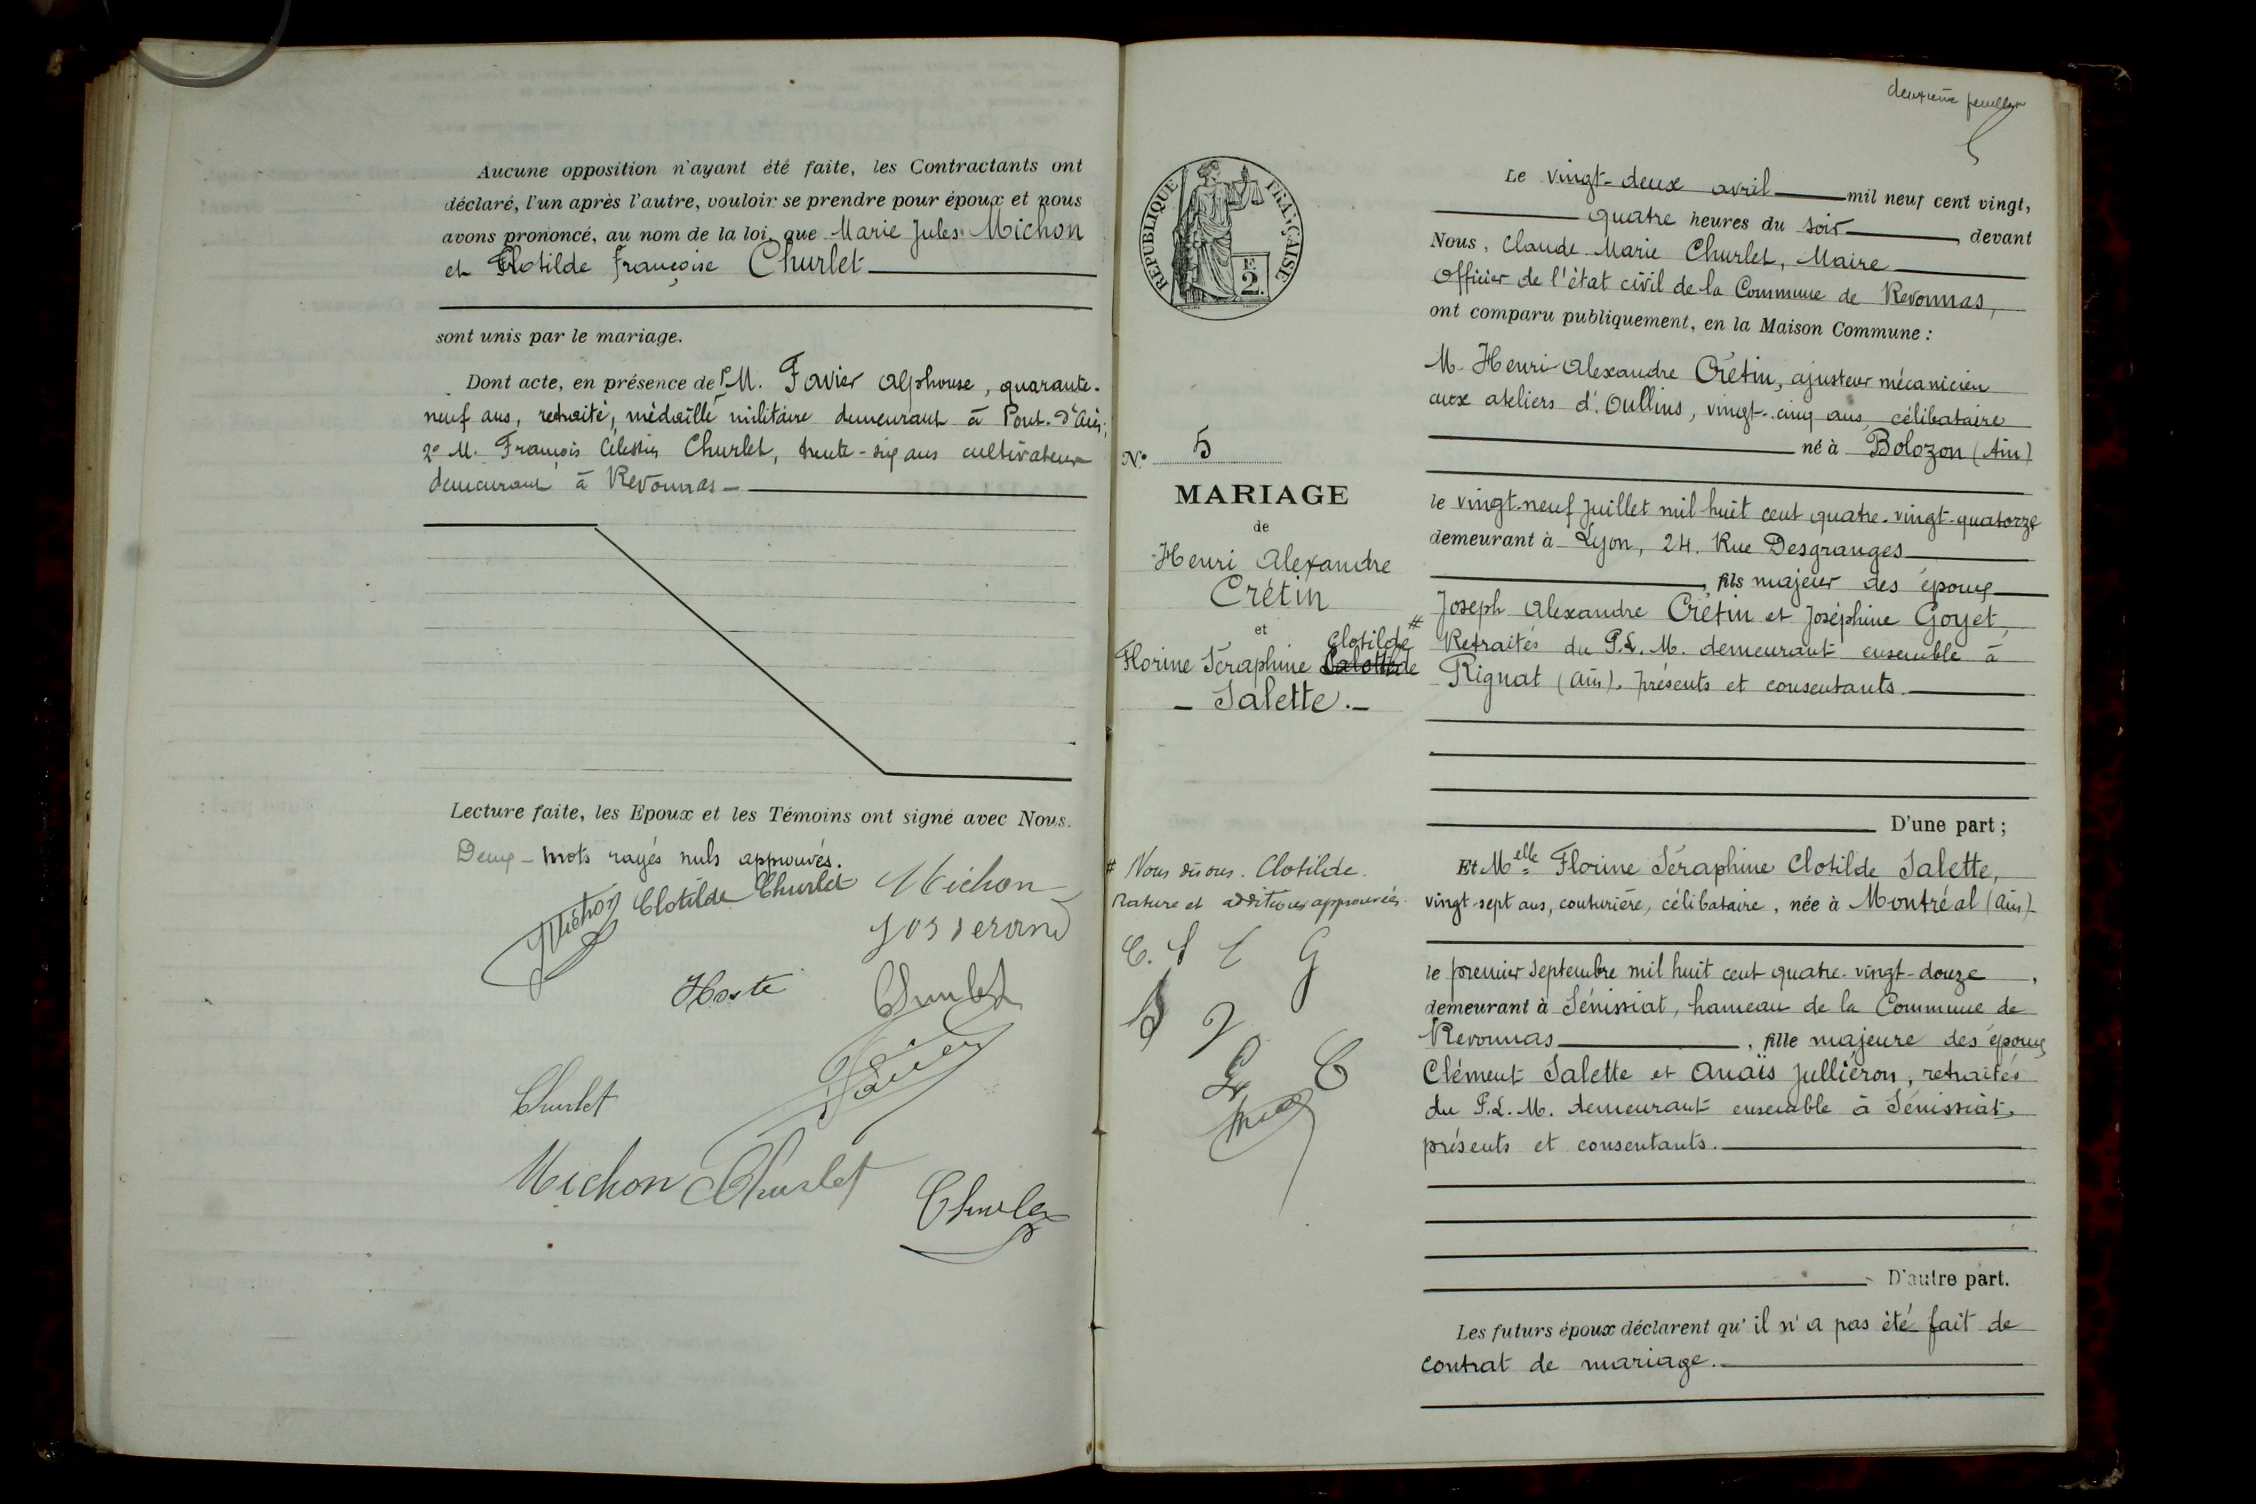 Aucune opposition n'ayant été faite, les Contractants ont
déclaré, l'un après l'autre, vouloir se prendre pour époux et nous
avons prononcé, au nom de la loi, que Marie Jules Michon
et Clotilde Françoise Churlet
sont unis par le mariage.
Dont acte, en présence de 1° M. Favier Alphonse, quarante-
neuf ans, retraité, médaillé militaire demeurant à Pont-d'Ain;
2° M. François Célestin Churlet, trente-six ans cultivateur
demeurant à Revonnas
Lecture faite, les Epoux et les Témoins ont signé avec Nous.
Deux mots rayés nuls approuvés.
JMichon Clotilde Churlet Michon
Josserand
Hoste Churlet
Favier
Churlet
Michon Churlet
Churlet
deuxième feuillet
RÉPUBLIQUE FRANÇAISE
2.
N° 5
MARIAGE
de
Henri Alexandre
Crétin
et
Clotilde #
Florine Séraphine
Salette.
# Nous disons. Clotilde.
Rature et additions approuvées.
C. S
Le vingt-deux avril mil neuf cent vingt,
quatre heures du soir, devant
Nous, Claude Marie Churlet, Maire
Officier de l'état civil de la Commune de Revonnas,
ont comparu publiquement, en la Maison Commune :
M. Henri Alexandre Crétin, ajusteur mécanicien
aux ateliers d'Oullins, vingt-cinq ans, célibataire
né à Bolozon (Ain)
le vingt-neuf Juillet mil huit cent quatre-vingt-quatorze
demeurant à Lyon, 24. Rue Desgranges
, fils majeur des époux
Joseph Alexandre Crétin et Joséphine Goyet,
Retraités du P.L.M. demeurant ensemble à
Rignat (Ain), présents et consentants.
D'une part ;
Et Melle Florine Séraphine Clotilde Salette,
vingt-sept ans, couturière, célibataire, née à Montréal (Ain)
le premier Septembre mil huit cent quatre-vingt-douze,
demeurant à Sénissiat, hameau de la Commune de
Revonnas, fille majeure des époux
Clément Salette et Anaïs Julliéron, retraités
du P.L.M. demeurant ensemble à Sénissiat,
présents et consentants.
D'autre part.
Les futurs époux déclarent qu'il n'a pas été fait de
contrat de mariage.